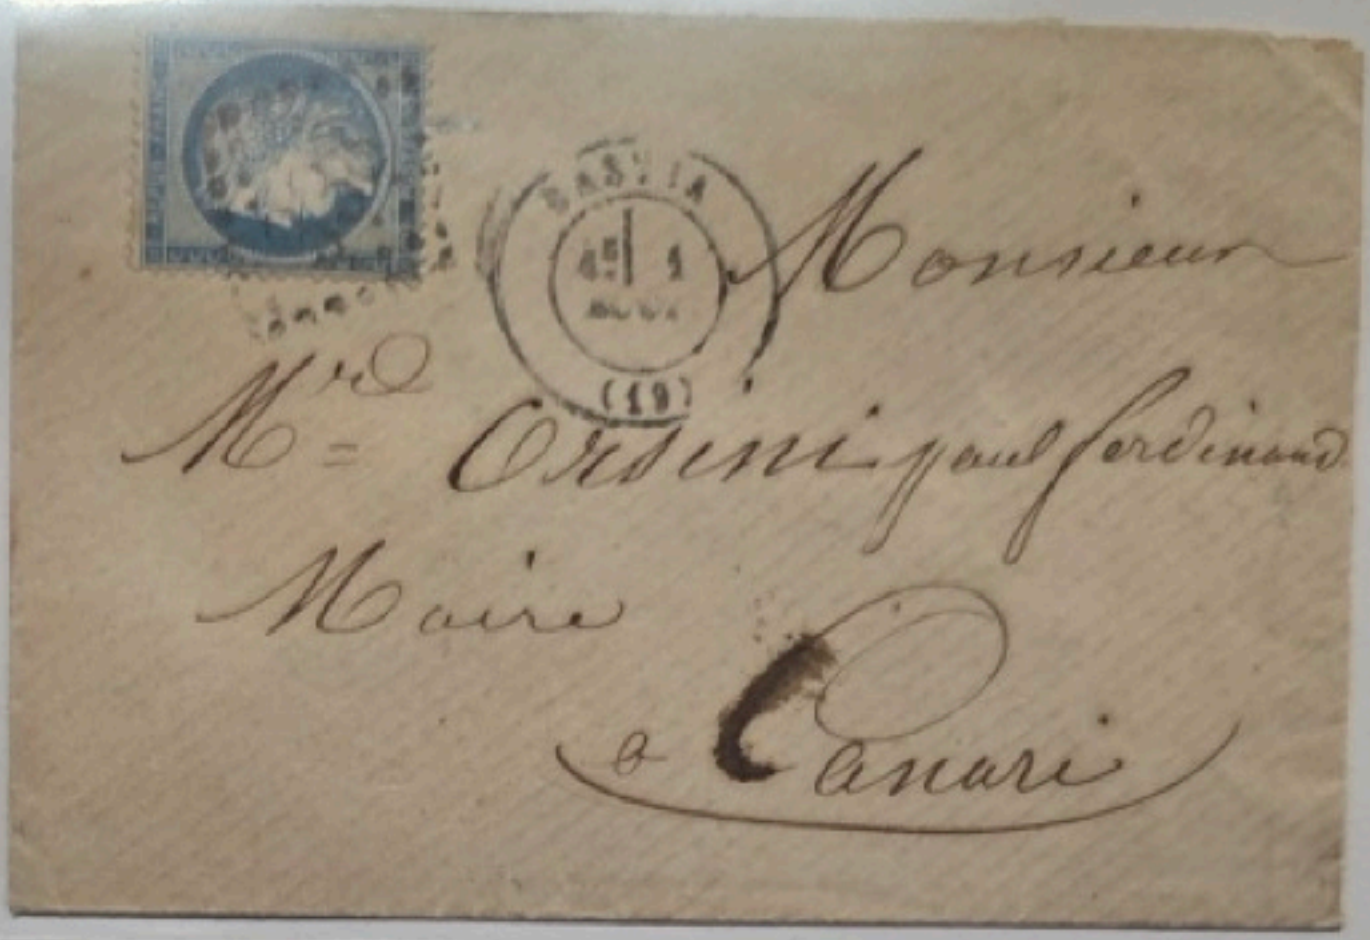 BASTIA
4E 1
AOUT
(19)
Monsieur
Mr = Orsini paul ferdinand
Maire
a Canari